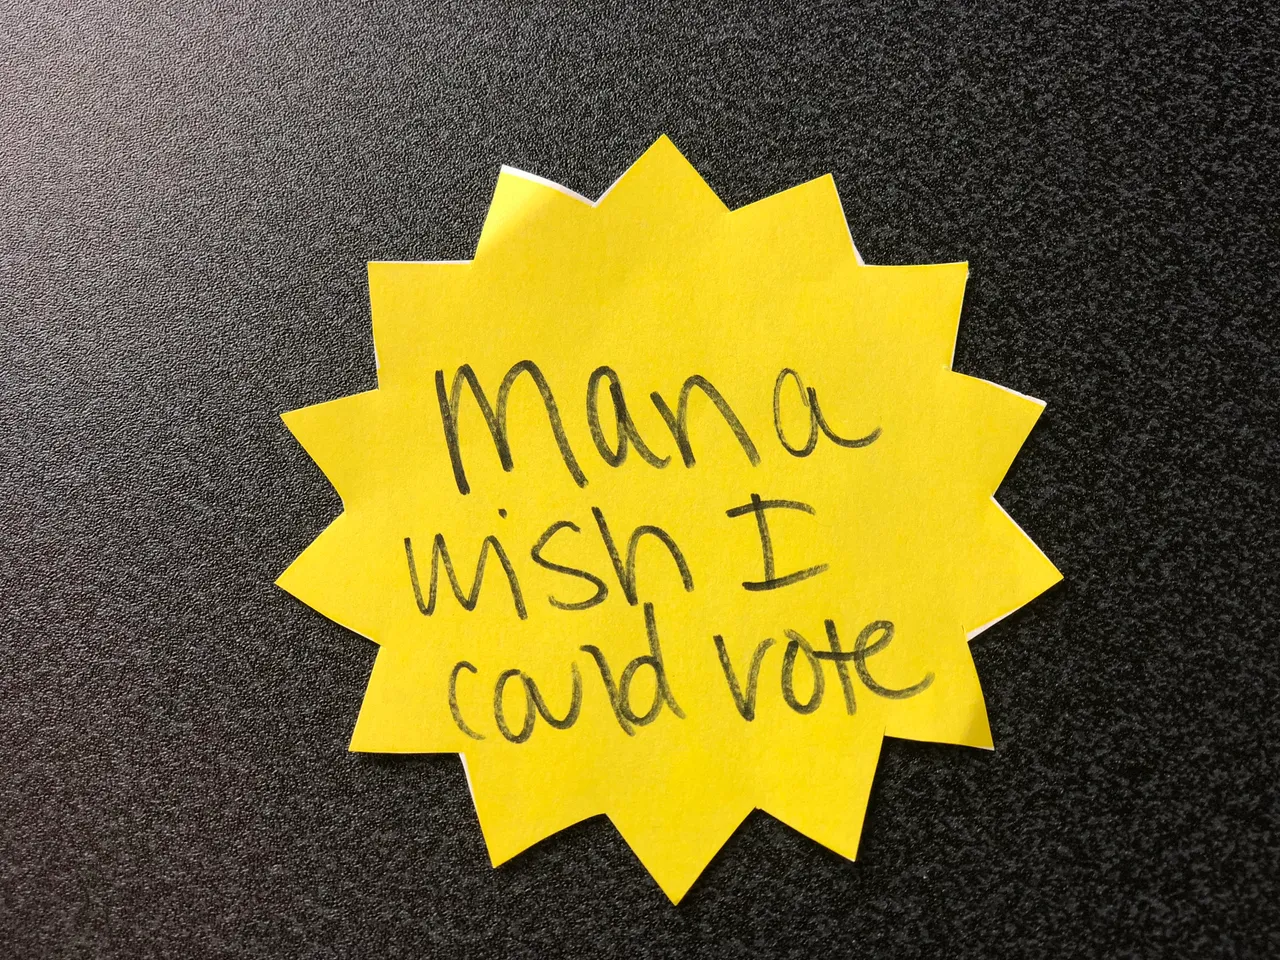 Mana
wish I
could vote